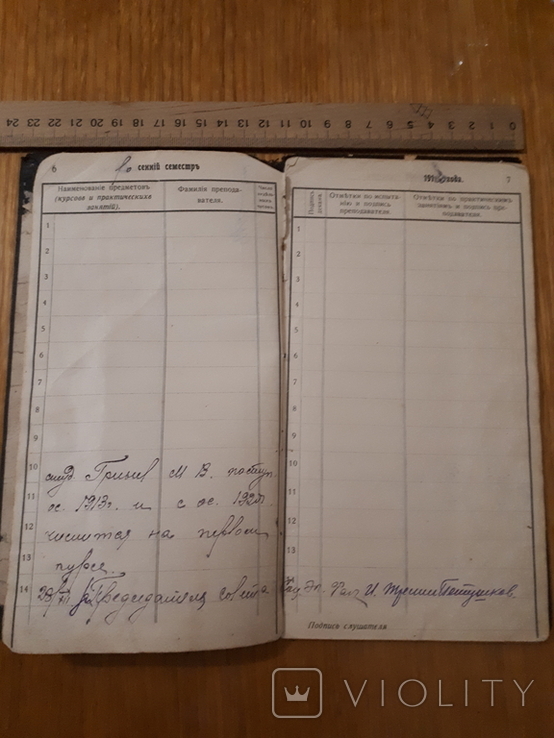 0 1 2 3 4 5 6 7 8 9 10 11 12 13 14 15 16 17 18 19 20 21 22 23 24
6
сенній семестръ
Наименованіе предметовъ (курсовъ и практическихъ занятій).
Фамилія преподавателя.
1
2
3
4
5
6
7
8
9
10
11
12
13
14
студ. М В. поступ.
ос. 1913г. и с ос. 192
числится на первом
курсе.
Председатель совета
191 года.
7
Отмѣтки по испытанію и подпись преподавателя.
Отмѣтки по практическимъ занятіямъ и подпись преподавателя.
1
2
3
4
5
6
7
8
9
10
11
12
13
И.
Подпись слушателя
VIOLITY